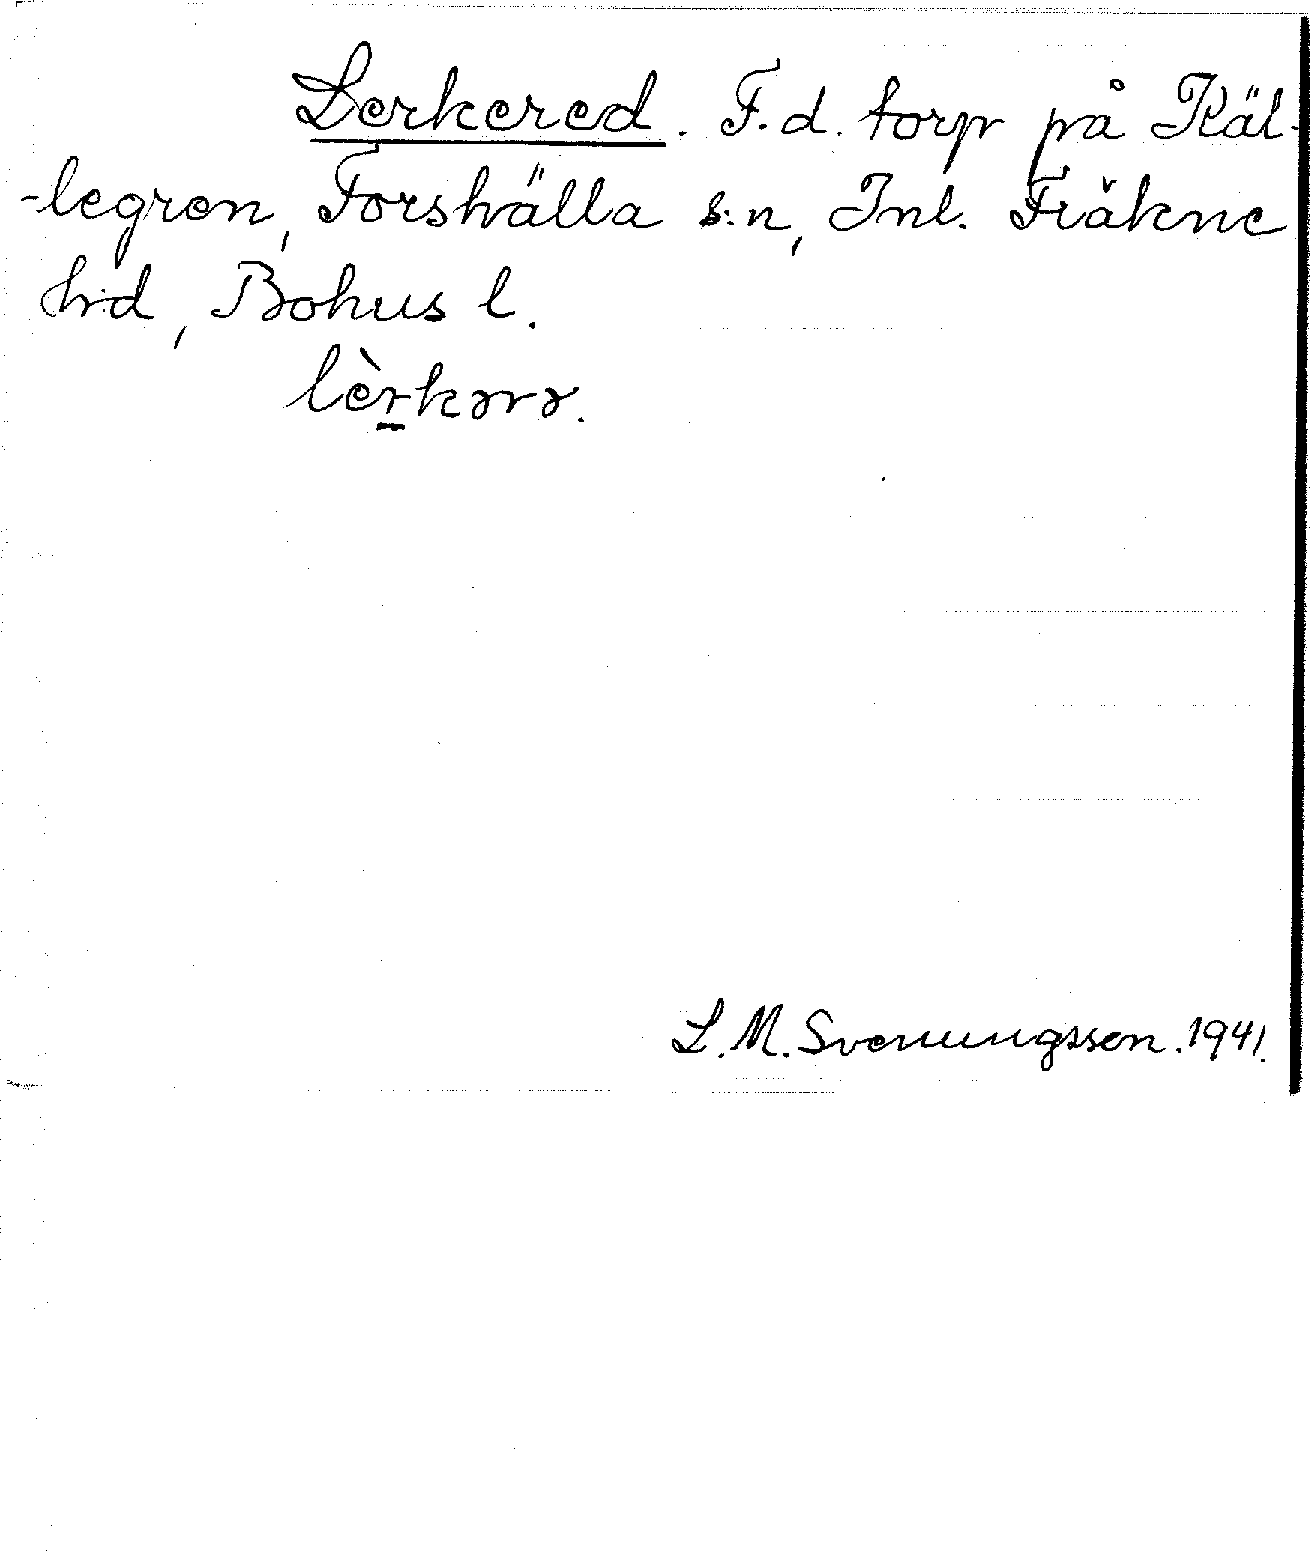 Lerkered. F.d. torp på Käl-
-legren, Forshälla s:n, Inl. Fräkne
hd, Bohus l.
lèrkərə.
L. M. Svenungsson. 1941.